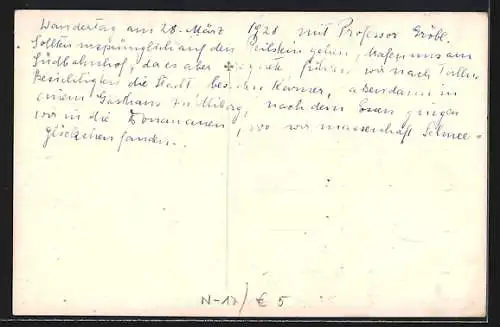 Wandertag am 28. März 1928 mit Professor Gröbl.
Sollten ursprünglich auf den Peilstein gehen, trafen uns am
Südbahnhof, da es aber regnete fuhren wir nach Tulln.
Besichtigten die Stadt besonders Karner, assen dann in
einem Gasthaus zu Mittag, nach dem Essen gingen
wir in die Donauauen, wo wir massenhaft Schnee-
glöckchen fanden.
N-17/ € 5